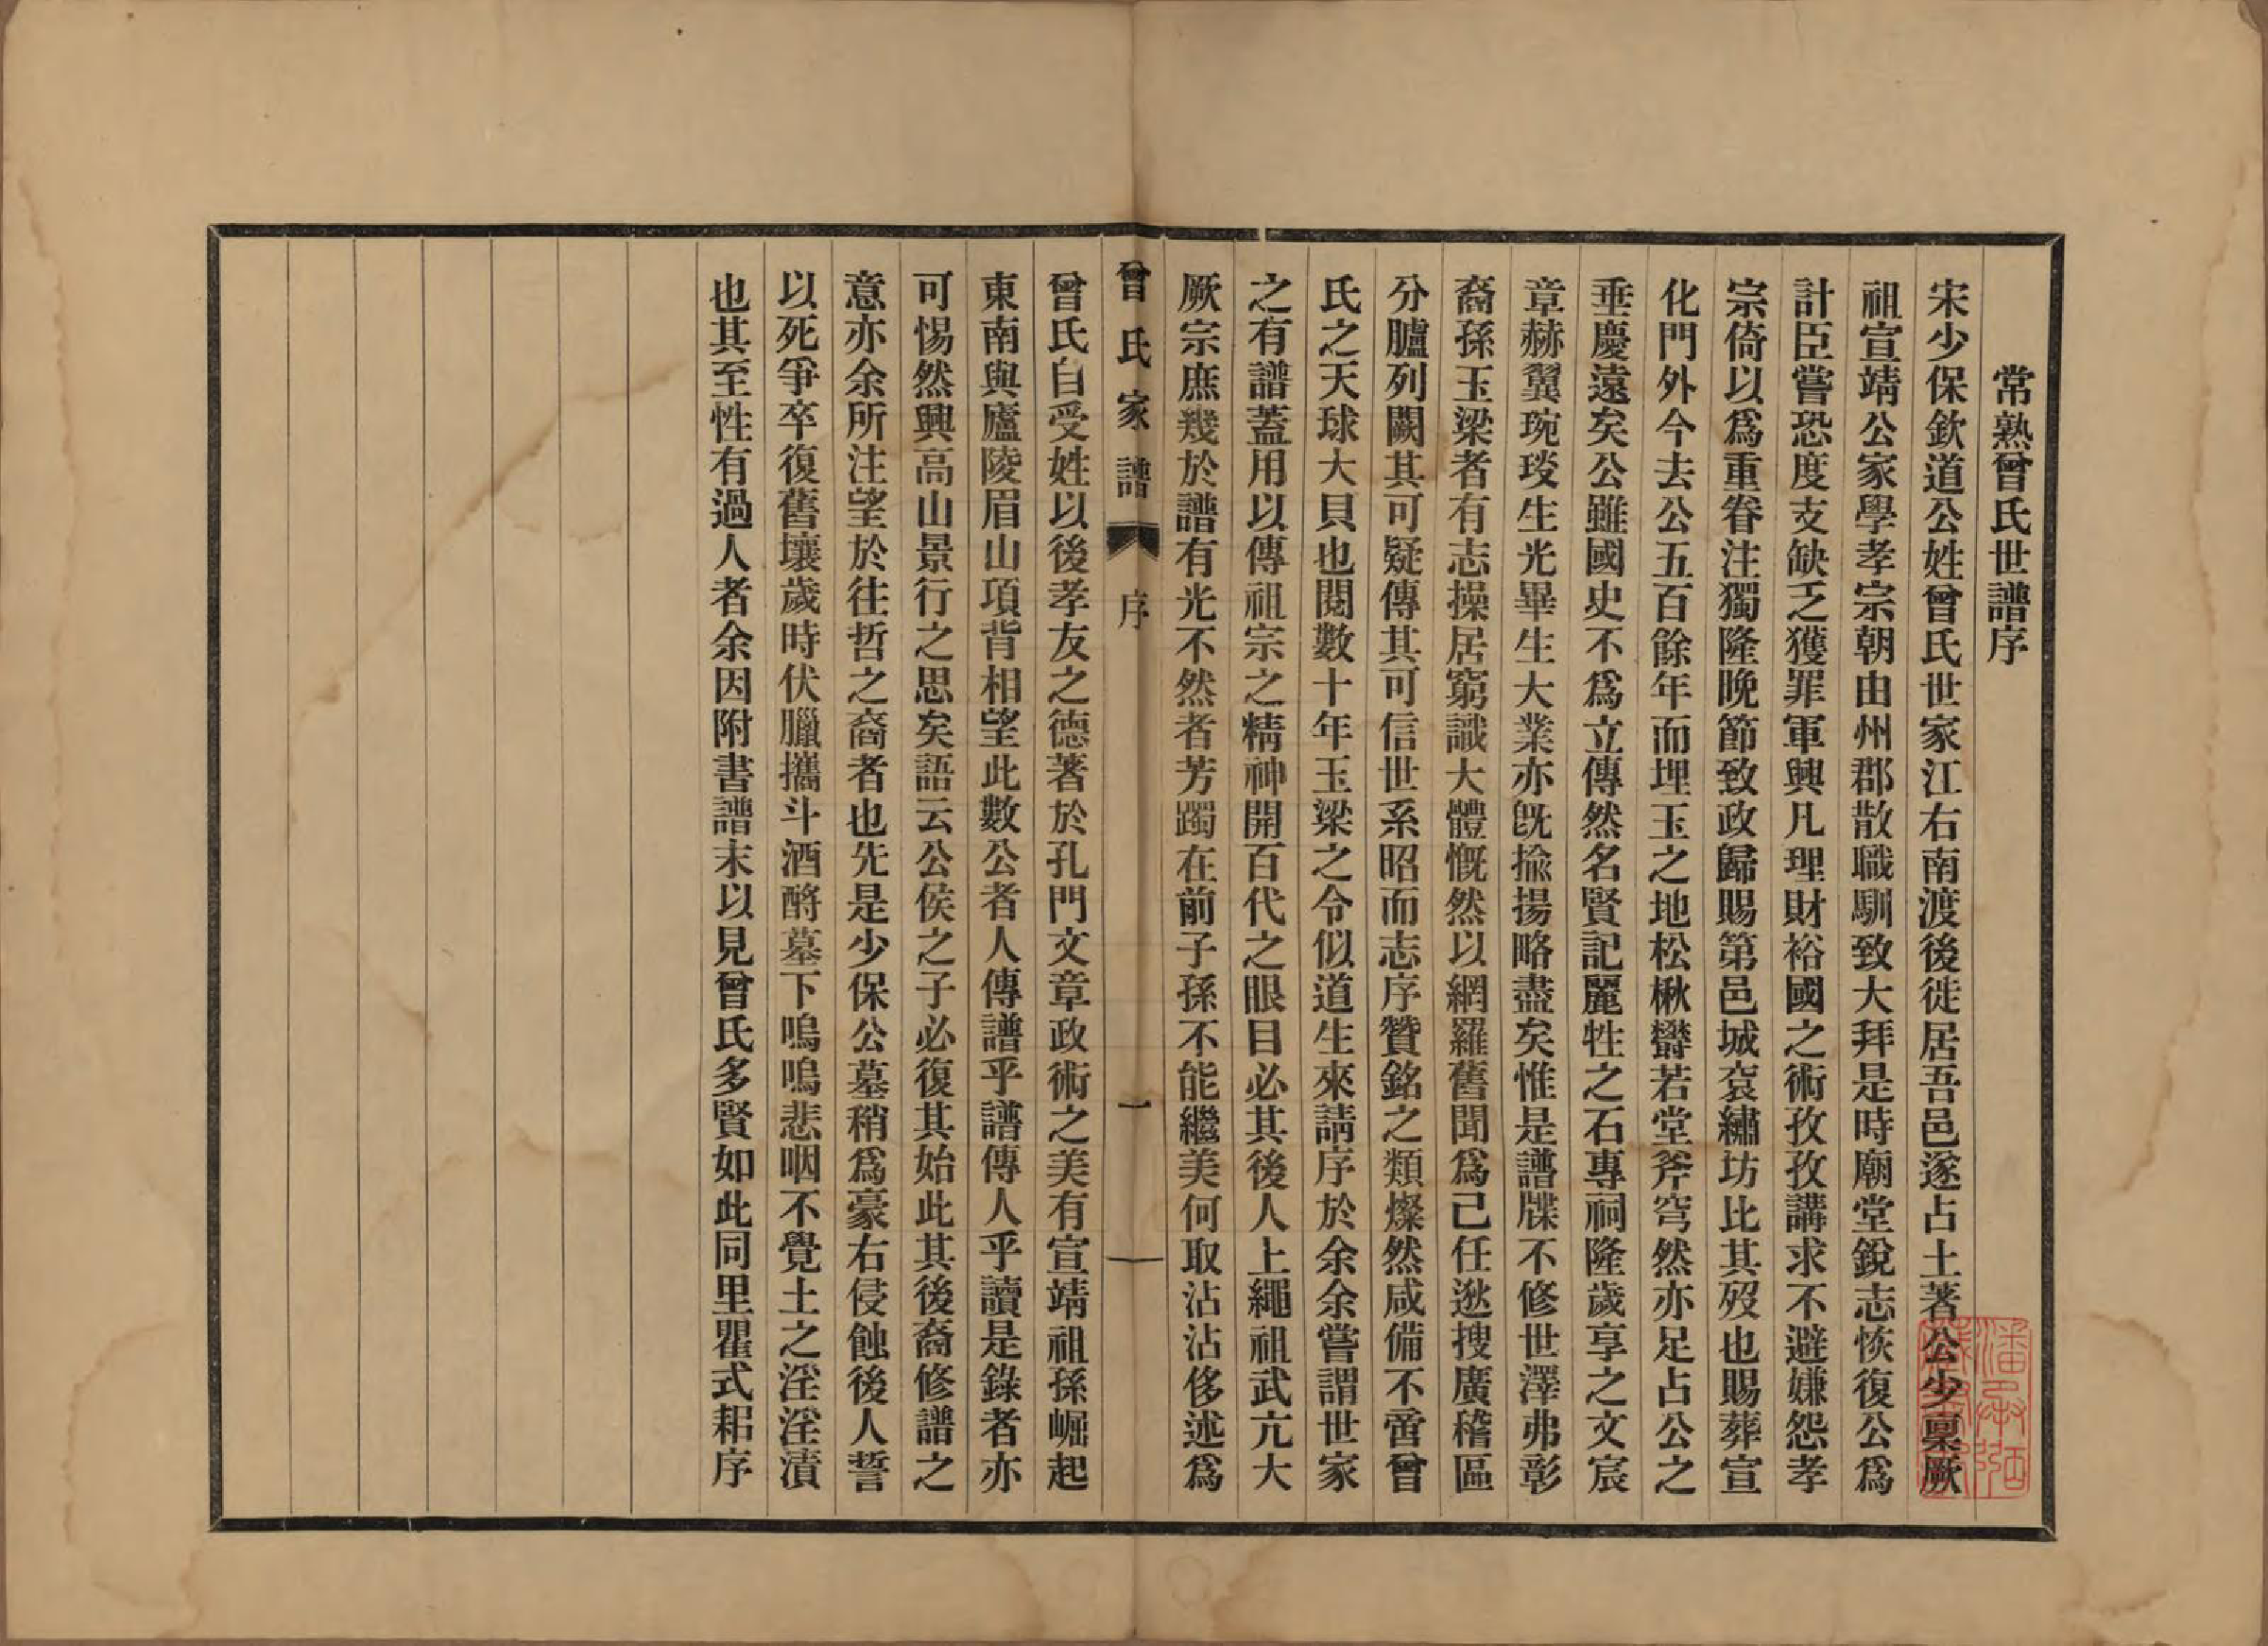 常熟曾氏世譜序
宋少保欽道公姓曾氏世家江右南渡後徙居吾邑遂占土著公少稟厥
祖宣靖公家學孝宗朝由州郡散職馴致大拜是時廟堂銳志恢復公爲
計臣嘗恐度支缺乏獲罪軍興凡理財裕國之術孜孜講求不避嫌怨孝
宗倚以爲重眷注獨隆晚節致政歸賜第邑城袞繡坊比其歿也賜葬宣
化門外今去公五百餘年而埋玉之地松楸欝若堂斧穹然亦足占公之
垂慶遠矣公雖國史不爲立傳然名賢記麗牲之石專祠隆歲享之文宸
章赫翼琬琰生光畢生大業亦旣揄揚略盡矣惟是譜牒不修世澤弗彰
裔孫玉梁者有志操居窮識大體慨然以網羅舊聞爲己任逖搜廣稽區
分臚列闕其可疑傳其可信世系昭而志序贊銘之類燦然咸備不啻曾
氏之天球大貝也閱數十年玉梁之令似道生來請序於余余嘗謂世家
之有譜蓋用以傳祖宗之精神開百代之眼目必其後人上繩祖武亢大
厥宗庶幾於譜有光不然者芳躅在前子孫不能繼美何取沾沾侈述爲
曾氏家譜 序 一
曾氏自受姓以後孝友之德著於孔門文章政術之美有宣靖祖孫崛起
東南與廬陵眉山項背相望此數公者人傳譜乎譜傳人乎讀是錄者亦
可惕然興高山景行之思矣語云公侯之子必復其始此其後裔修譜之
意亦余所注望於往哲之裔者也先是少保公墓稍爲豪右侵蝕後人誓
以死爭卒復舊壤歲時伏臘攜斗酒酹墓下嗚嗚悲咽不覺土之淫淫漬
也其至性有過人者余因附書譜末以見曾氏多賢如此同里瞿式耜序